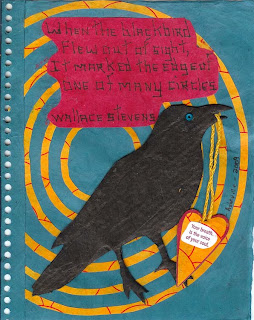 When the blackbird
flew out of sight,
It marked the edge of
one of many circles
Wallace Stevens
Your breath,
is the voice
of your soul.